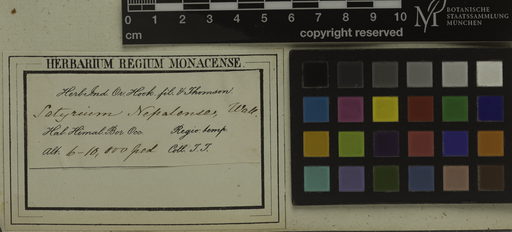 4 5 6 7 8 9 10
cm
copyright reserved
BOTANISCHE
STAATSSAMMLUNG
MÜNCHEN
HERBARIUM REGIUM MONACENSE.
Herb. Ind. Or. Hook. fil. & Thomson.
Satyrium Nepalense, Wall.
Hab. Himal. Bor. Occ. Regio temp.
Alt. 6-10,000 ped Coll. T.T.